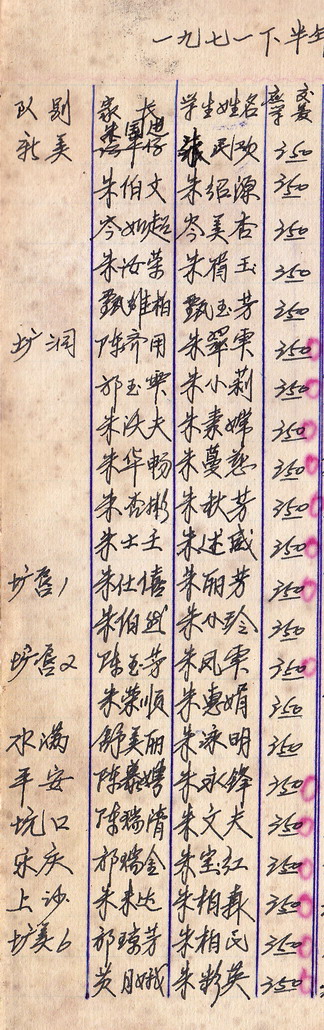 一九七一下半年
队别 家长 学生姓名 应交学费
新美 张民欢 350
朱伯文 朱绍源 350
岑如超 岑美杏 350
朱汝荣 朱眉玉 350
甄维柏 甄玉芳 350
圹润 陈齐用 朱翠雯 350
邝玉雯 朱小莉 350
朱沃夫 朱素嫦 350
朱华畅 朱蔓慈 350
朱杏彬 朱秋芳 350
朱士士 朱述威 350
圹唇1 朱仕僖 朱丽芳 350
朱伯 朱小玲 350
圹唇2 陈玉芬 朱凤雯 350
朱荣顺 朱惠娟 350
水满 舒美丽 朱泳明 350
平安 陈慕嫦 朱永锋 350
坑口 陈瑞清 朱文夫 350
乐庆 邝瑞金 朱宝红 350
上沙 朱来达 朱柏森 350
圹美6 邝琼芳 朱柏民 350
黄月娥 朱彩英 350